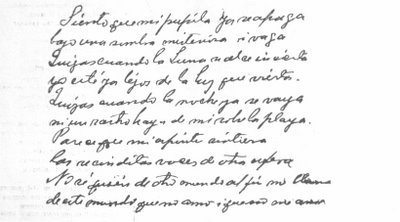 Siento que mi pupila ya se apaga
bajo una sombra misteriosa i vaga
Quizas cuando la luna alce incierta
yo esté ya lejos de la luz que vierta.
Quizas cuando la noche ya se vaya
ni un rastro haya de mi sobre la playa.
Parece que mi espiritu sintiera
las recónditas voces de otra esfera
No sé quién de otro mundo al fin me llama
de este mundo que no amo i que no me ama